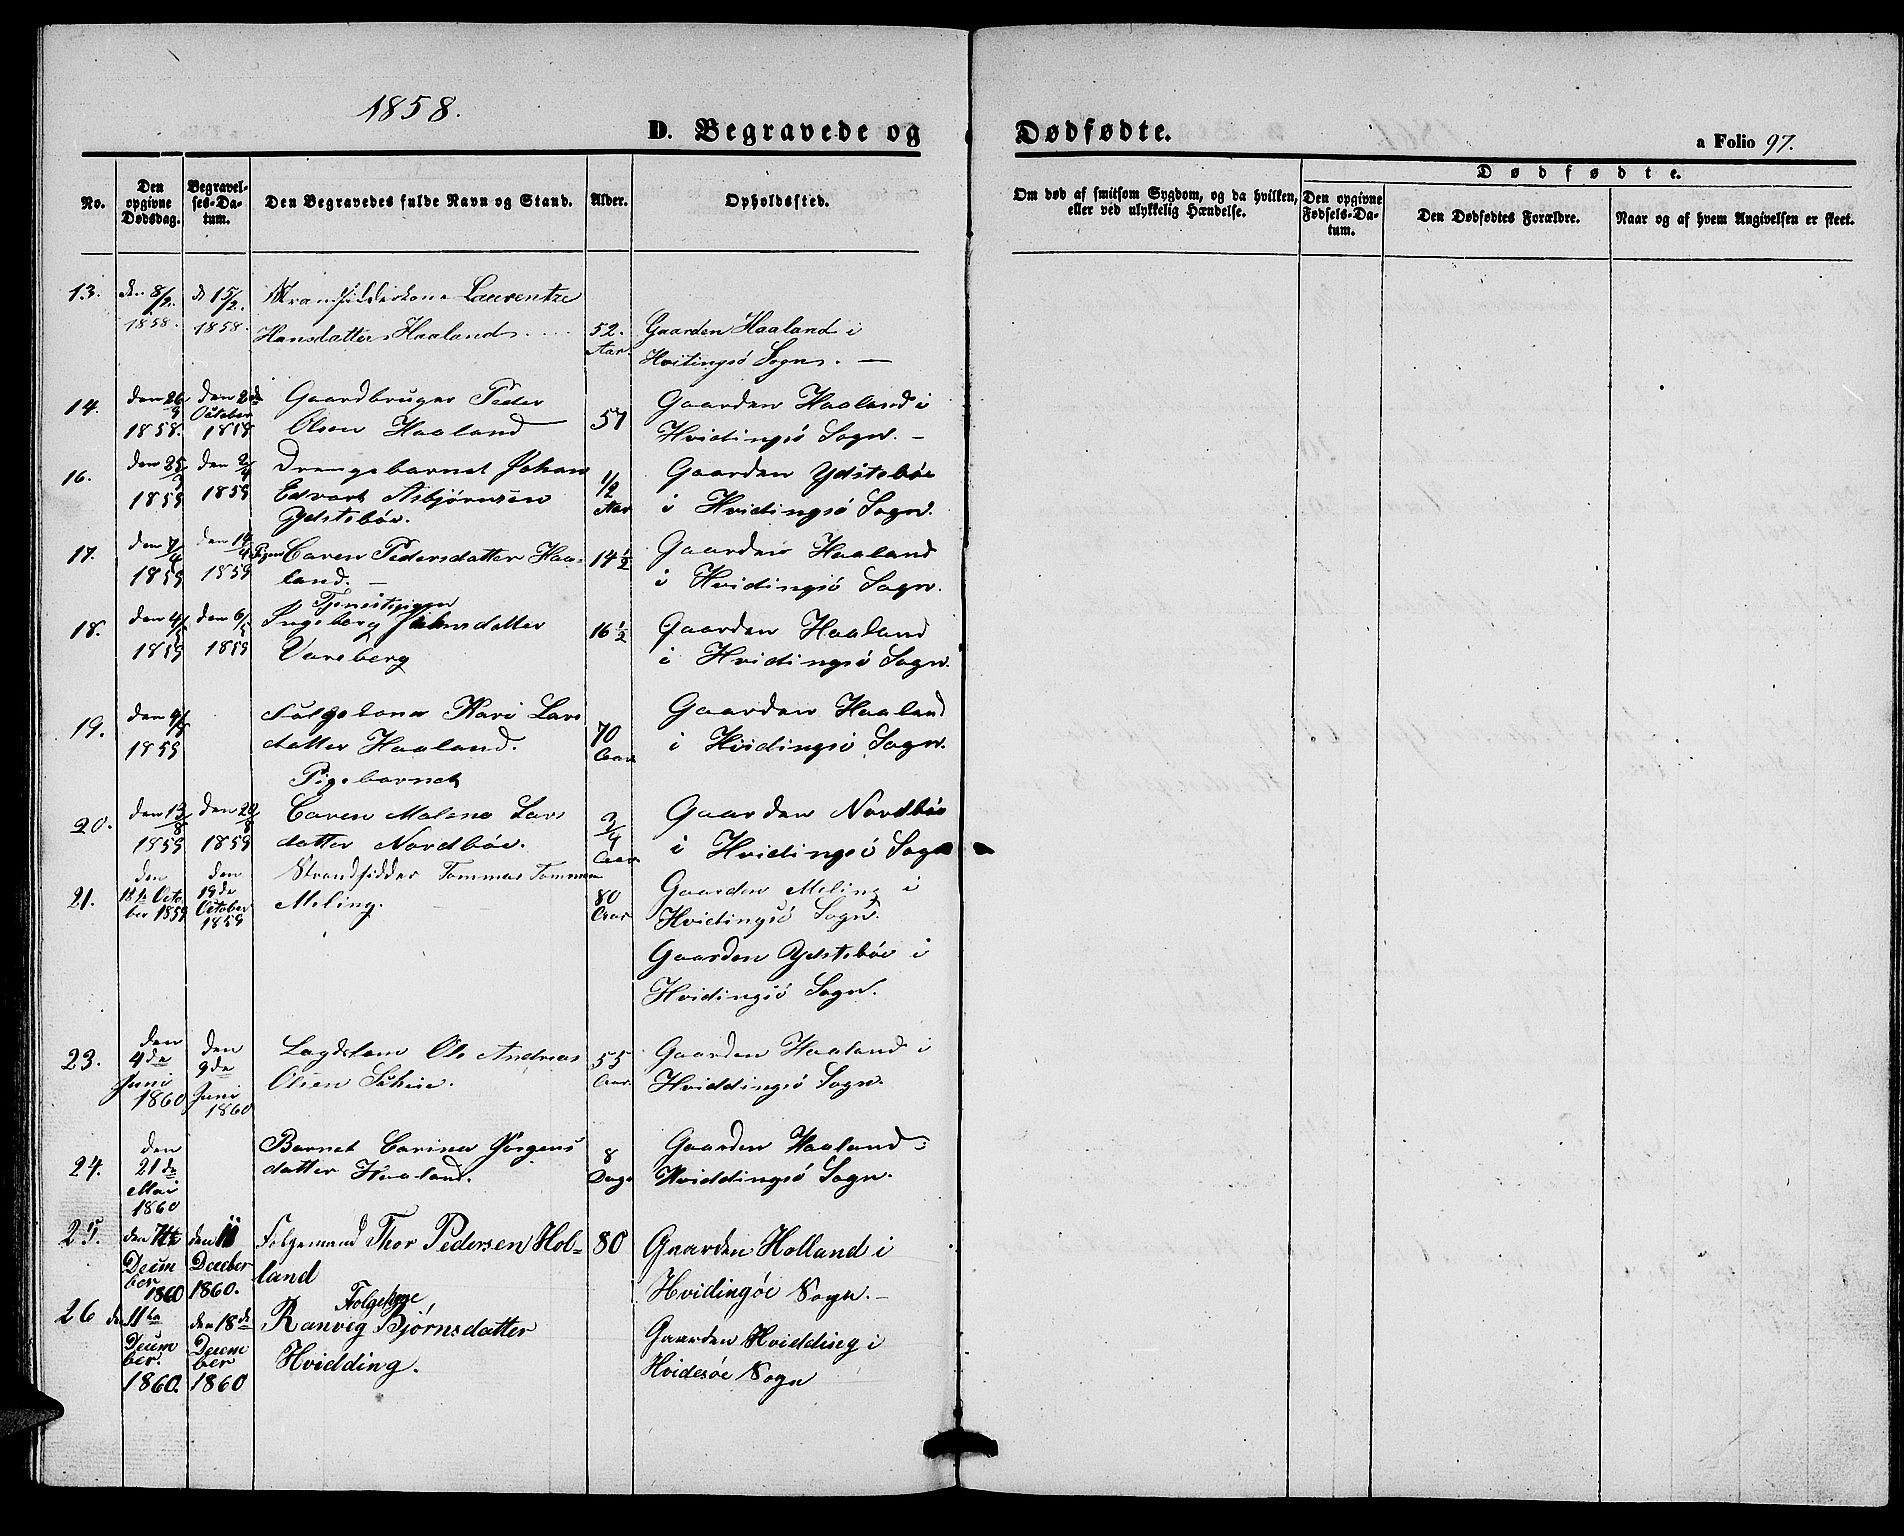 1858.
D. Begravede og Dødfødte.
a Folio 97.
No.
Den opgivne Dødsdag.
Begravelses-Datum.
Den Begravedes fulde Navn og Stand.
Alder.
Opholdssted.
Om død af smitsom Sygdom, og da hvilken, eller ved ulykkelig Hændelse.
Dødfødte.
Den opgivne Fødsels-Datum.
Den Dødfødtes Forældre.
Naar og af hvem Angivelsen er skeet.
13. den 8/2. d 15/2. Laurentze
1858. 1858. Hansdatter Haaland 52. Gaarden Haaland i
Aar. Hvitingsö Sogn. —
14. den 26/9 den 2de Gaardbruger Peder Gaarden Haaland i
October
1858. 1858 Olsen Haaland 57 Hvidingsö Sogn. —
16. den 25/ den 2/4 Drengebarnet Johan 1/2 Gaarden Ydsteböe
1859 1859 Edvart Asbjørnsen Aar i Hvidingsö Sogn.
Ydsteböe.
17. den 7/4 den 14/4 Pigen Caren Pedersdatter Haa- 14 1/2 Gaarden Haaland
1859 1859 land. — i Hvidingsö Sogn.
Tjenestepigen
18. den 4/5 den 6/5 Ingeborg datter 16 1/2 Gaarden Haaland
1859 1859 Vareberg i Hvidingsö Sogn.
19. den Kari Lars 70 Gaarden Haaland
1859 datter Haaland. Aar i Hvidingsö Sogn.
Pigebarnet
20. den 13/8 den 20/8 Caren Malena Lars 3/4 Gaarden Nordböe
1859 1859 datter Nordböe. Aar i Hvidingsö Sogn
21. den den Strandsidder Tommas 80 Gaarden Meling i
Octo 19de Meling. Aar Hvidingsö Sogn.
ber 1859 October
1859
Gaarden Ydsteböe i
Hvidingsö Sogn.
23. den den Ole Andreas 55 Gaarden Haaland i
4de 9de Olsen Aar. Hviddingsö Sogn.
Juni Juni
1860 1860
24. den Barnet Carina Jörgens 8 Gaarden Haaland i
21de datter Haaland. Dage Hviddingsö Sogn.
Mai
1860
25. den 7de den 11 Folgemand Thor Pedersen Hol- 80 Gaarden Holland i
Decem December land Hvidingöe Sogn. —
ber
1860 1860.
Folgekone
26 d. 11te den 18de Ranvig Bjørnsdatter Gaarden Hvidding i
Decem Decem Hvidding. Hvidesøe Sogn
ber. ber
1860. 1860